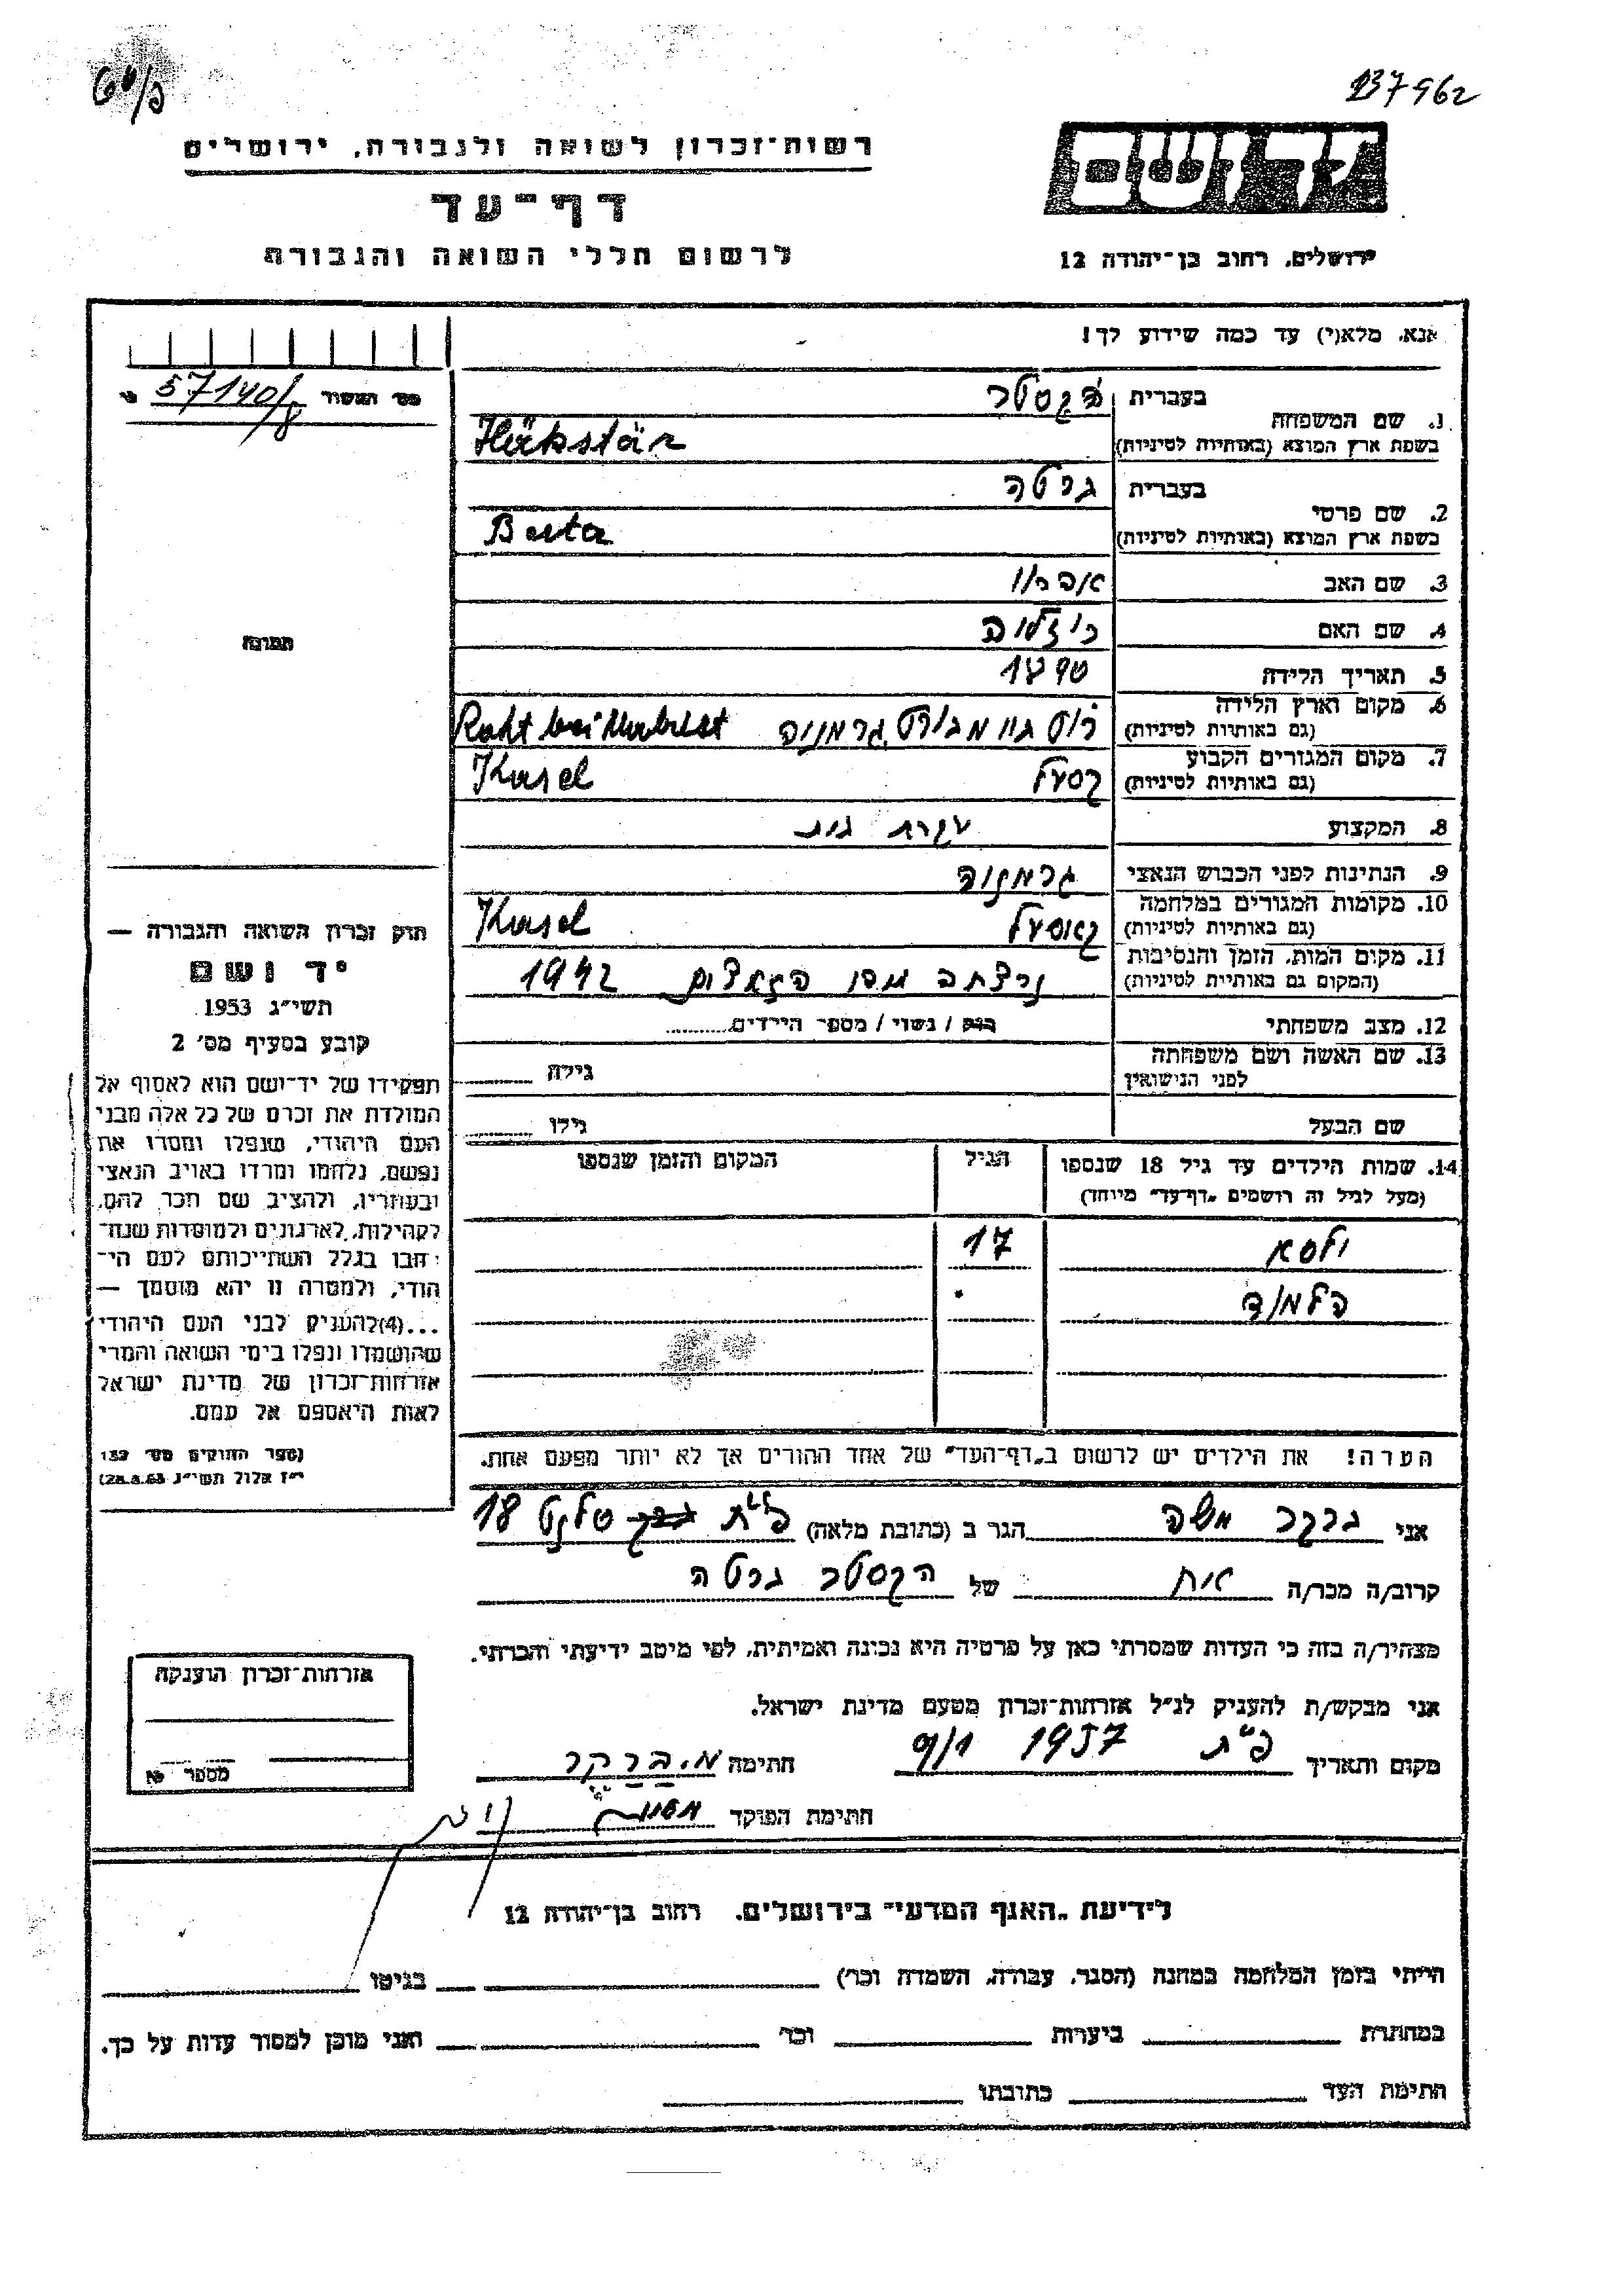 137962
רשות־זכרון לשואה ולגבורה, ירושלים
דף־עד
לרשום חללי השואה והגבורה
ירושלים, רחוב בן־יהודה 12
אנא, מלא(י) עד כמה שידוע לך!
מס' האשור 57140/8
1. שם המשפחה בעברית הקסטר
בשפת ארץ המוצא (באותיות לטיניות) Häkstär
2. שם פרטי בעברית ברטה
בשפת ארץ המוצא (באותיות לטיניות) Berta
3. שם האב
4. שם האם
5. תאריך הלידה 1890
6. מקום וארץ הלידה גרמניה
(גם באותיות לטיניות)
7. מקום המגורים הקבוע קסעל Kasel
(גם באותיות לטיניות)
8. המקצוע עקרת בית
9. הנתינות לפני הכבוש הנאצי גרמניה
10. מקומות המגורים במלחמה קאסעל Kasel
(גם באותיות לטיניות)
11. מקום המות, הזמן והנסיבות נרצחה 1942
(המקום גם באותיות לטיניות)
12. מצב משפחתי רווק / נשוי / מספר הילדים
13. שם האשה ושם משפחתה לפני הנישואין גילה
שם הבעל גילו
14. שמות הילדים עד גיל 18 שנספו הגיל המקום והזמן שנספו
(מעל לגיל זה רושמים „דף־עד" מיוחד)
אלסא 17
הלמוד
הערה! את הילדים יש לרשום ב„דף־העד" של אחד ההורים אך לא יותר מפעם אחת.
תמונה
חוק זכרון השואה והגבורה —
יד ושם
תשי"ג 1953
קובע בסעיף מס' 2
תפקידו של יד־ושם הוא לאסוף אל
המולדת את זכרם של כל אלה מבני
העם היהודי, שנפלו ומסרו את
נפשם, נלחמו ומרדו באויב הנאצי
ובעוזריו, ולהציב שם וזכר להם,
לקהילות, לארגונים ולמוסדות שנח־
רבו בגלל השתייכותם לעם הי־
הודי, ולמטרה זו יהא מוסמך —
...(4) להעניק לבני העם היהודי
שהושמדו ונפלו בימי השואה והמרי
אזרחות־זכרון של מדינת ישראל
לאות היאספם אל עמם.
(ספר החוקים מס' 132
י"ז אלול תשי"ג 28.8.53)
אני ברקר משה הגר ב (כתובת מלאה) פ"ת 18
קרוב/ה מכר/ה אח של הקסטר ברטה
מצהיר/ה בזה כי העדות שמסרתי כאן על פרטיה היא נכונה ואמיתית, לפי מיטב ידיעתי והכרתי.
אני מבקש/ת להעניק לנ"ל אזרחות־זכרון מטעם מדינת ישראל.
מקום ותאריך פ"ת 1957 חתימה מ. ברקר
חתימת הפוקד
אזרחות־זכרון הוענקה
מספר
לידיעת „האגף המדעי" בירושלים, רחוב בן־יהודה 12
הייתי בזמן המלחמה במחנה (הסגר, עבודה, השמדה וכו') בגיטו
במחתרת ביערות וכו' ואני מוכן למסור עדות על כך.
חתימת העד כתובתו